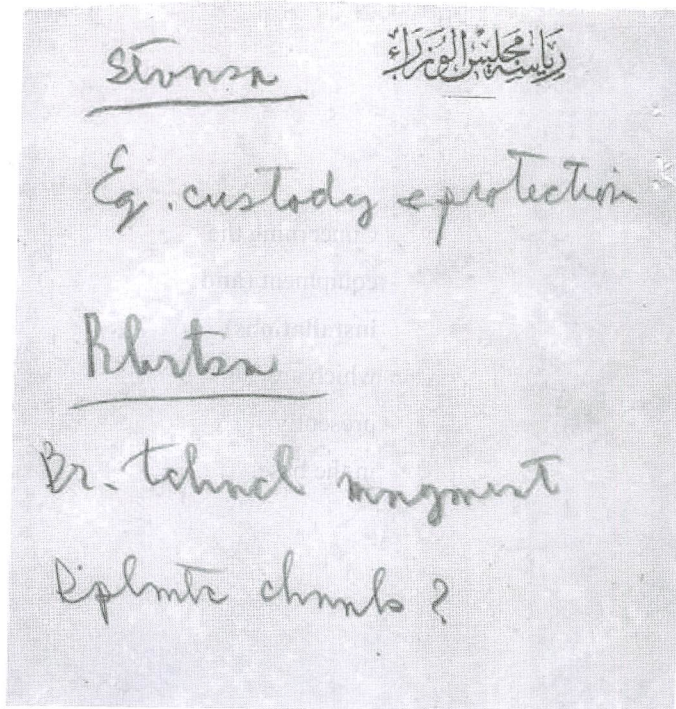 Stvnsn
رياسة مجلس الوزراء
Eg. custody & protection
Rbrtsn
Br. tchncl mngment
Diplmtc chnnls?